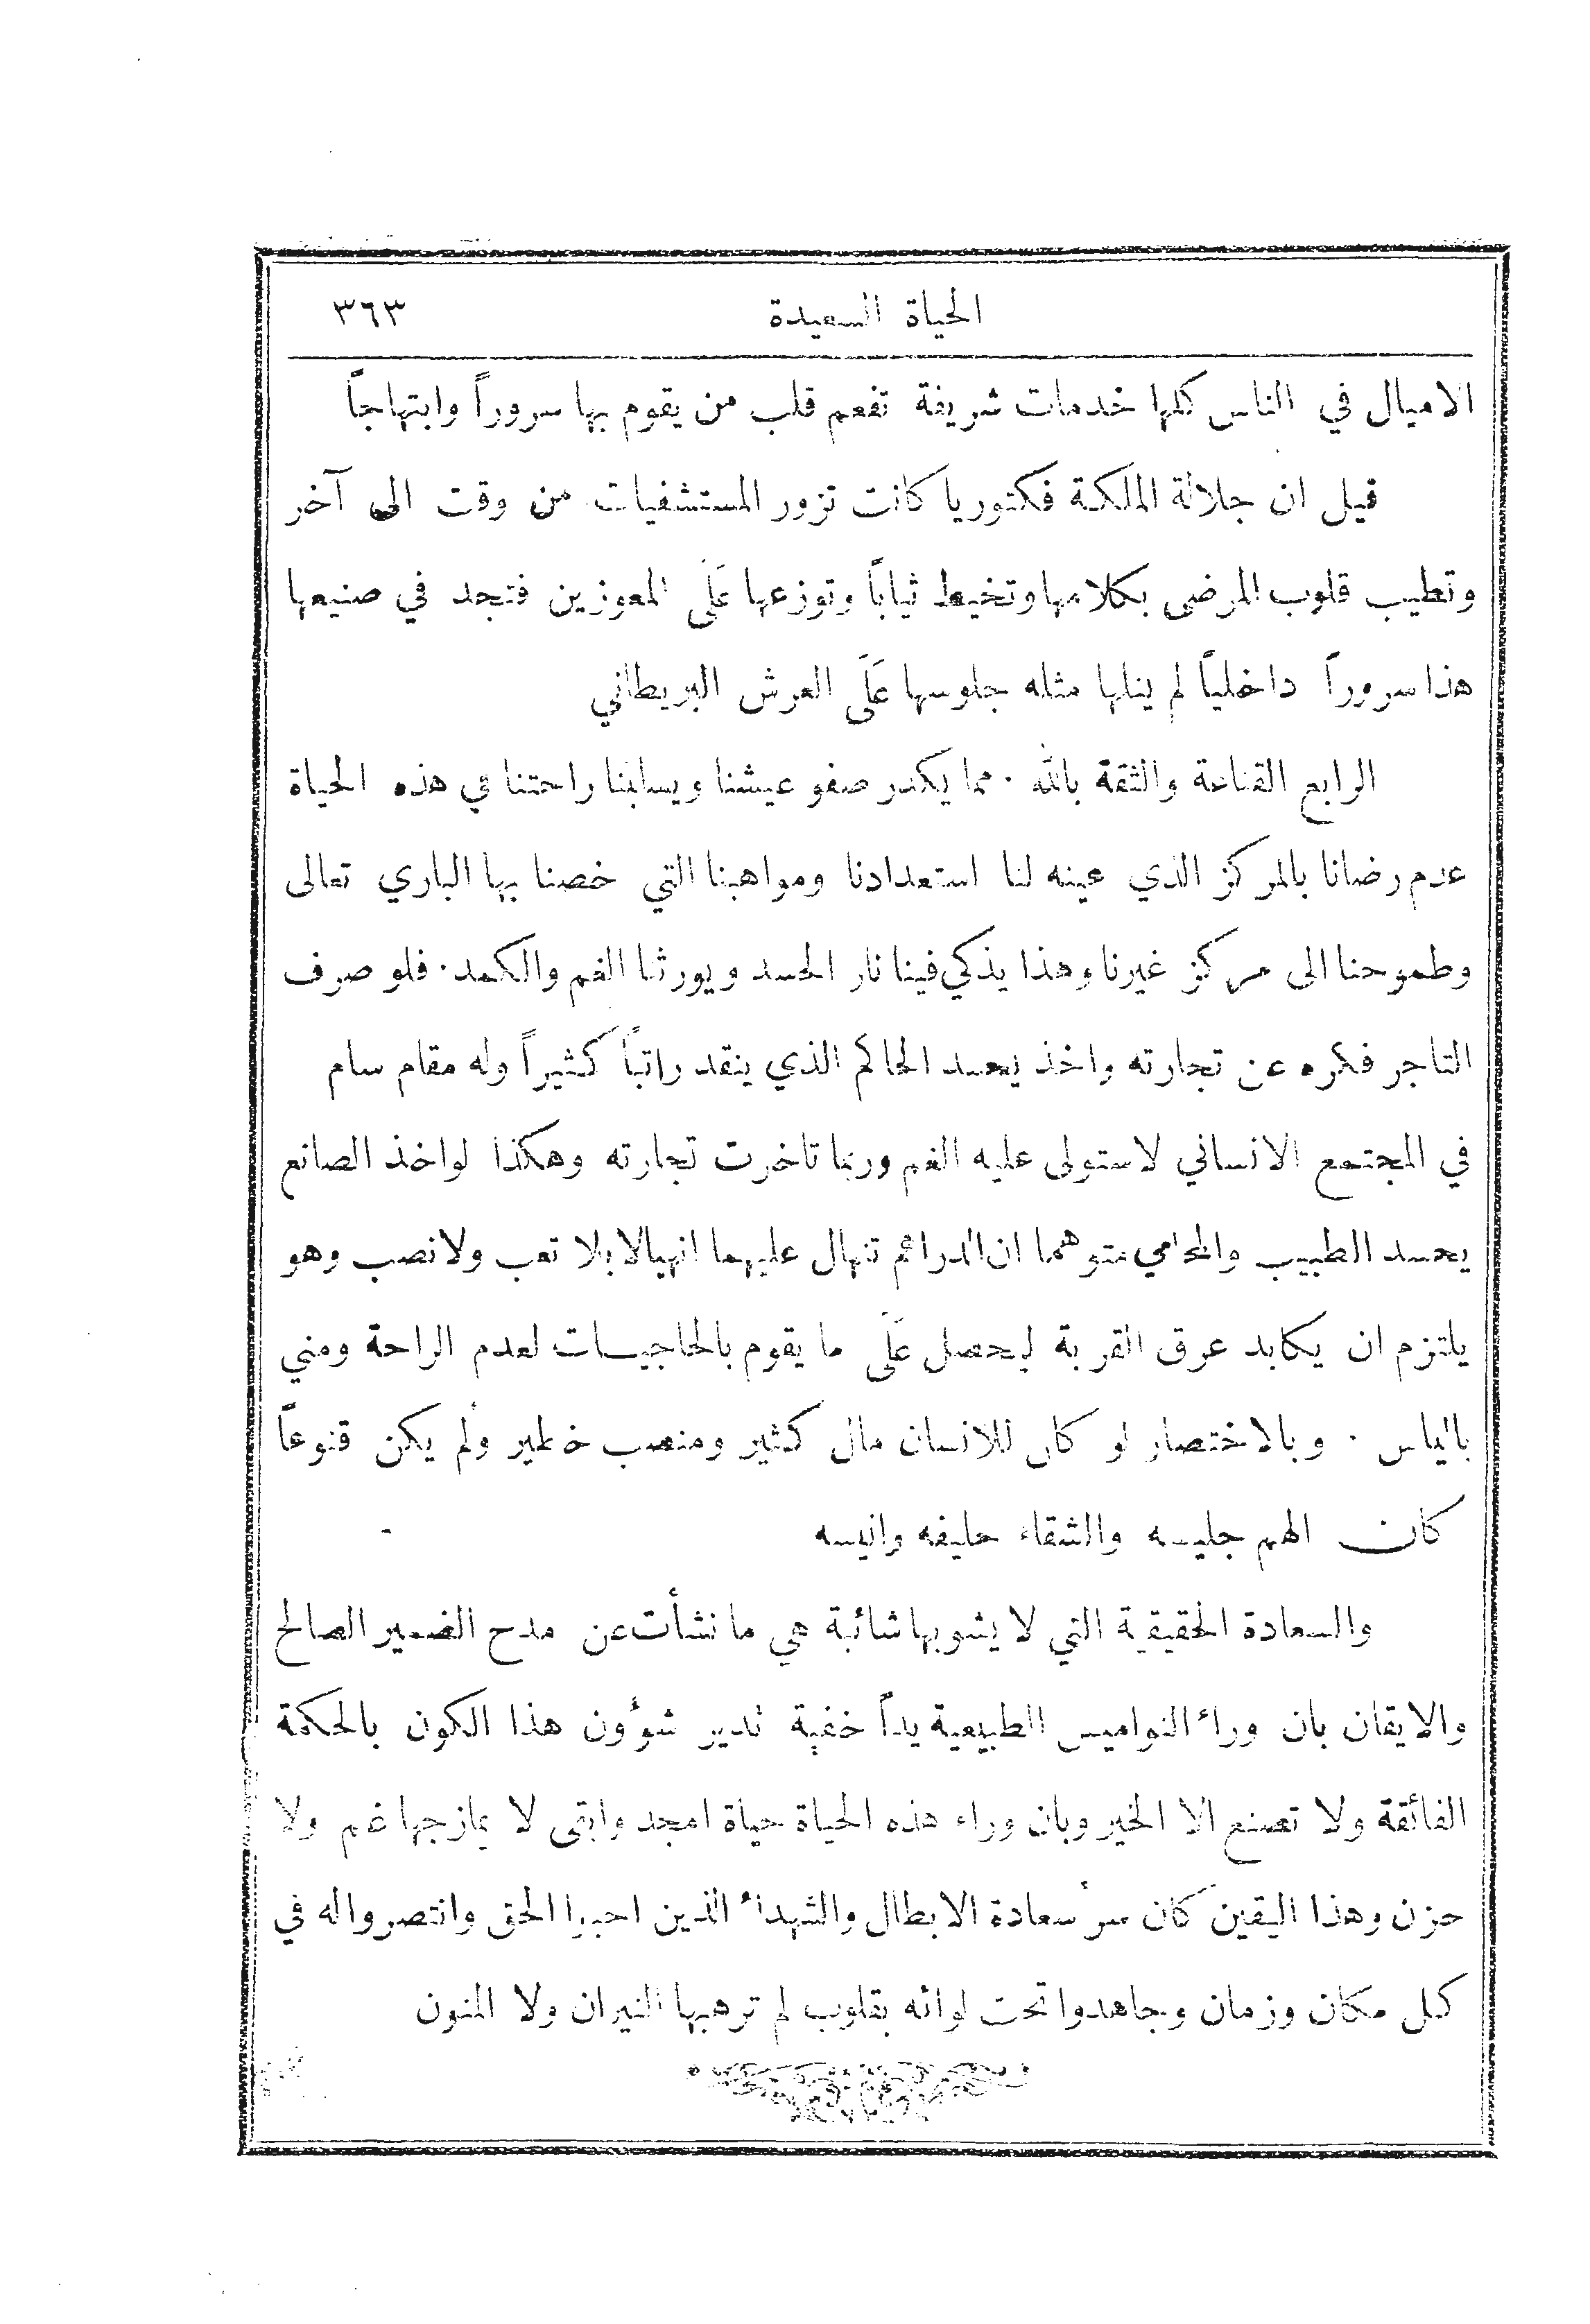 الحياة السعيدة ٣٦٣
الاميال في الناس كلها خدمات شريفة تفعم قلب من يقوم بها سروراً وابتهاجاً
قيل ان جلالة الملكة فكتوريا كانت تزور المستشفيات من وقت الى آخر
وتطيب قلوب المرضى بكلامها وتخيط ثياباً وتوزعها عَلَى المعوزين فتجد في صنيعها
هذا سروراً داخلياً لم ينلها مثله جلوسها عَلَى العرش البريطاني
الرابع القناعة والثقة بالله . مما يكدر صفو عيشنا ويسلبنا راحتنا في هذه الحياة
عدم رضانا بالمركز الذي عينه لنا استعدادنا ومواهبنا التي خصنا بها الباري تعالى
وطموحنا الى مركز غيرنا وهذا يذكي فينا نار الحسد ويورثنا الغم والكمد . فلو صرف
التاجر فكره عن تجارته واخذ يحسد الحاكم الذي ينقد راتباً كثيراً وله مقام سام
في المجتمع الانساني لاستولى عليه الغم وربما تاخرت تجارته وهكذا لو اخذ الصانع
يحسد الطبيب والمحامي متوهما ان الدراهم تنهال عليهما انهيالا بلا تعب ولا نصب وهو
يلتزم ان يكابد عرق القربة ليحصل عَلَى ما يقوم بالحاجيات لعدم الراحة ومني
بالياس . وبالاختصار لو كان للانسان مال كثير ومنصب خطير ولم يكن قنوعاً
كان الهم جليسه والشقاء حليفه وانيسه
والسعادة الحقيقية التي لا يشوبها شائبة هي ما نشأت عن مدح الضمير الصالح
والايقان بان وراء النواميس الطبيعية يداً خفية تدير شوؤن هذا الكون بالحكمة
الفائقة ولا تصنع الا الخير وبان وراء هذه الحياة حياة امجد وابقى لا يمازجها غم ولا
حزن وهذا اليقين كان سر سعادة الابطال والشهداء الذين احبوا الحق وانتصروا له في
كل مكان وزمان وجاهدوا تحت لوائه بقلوب لم ترهبها النيران ولا المنون